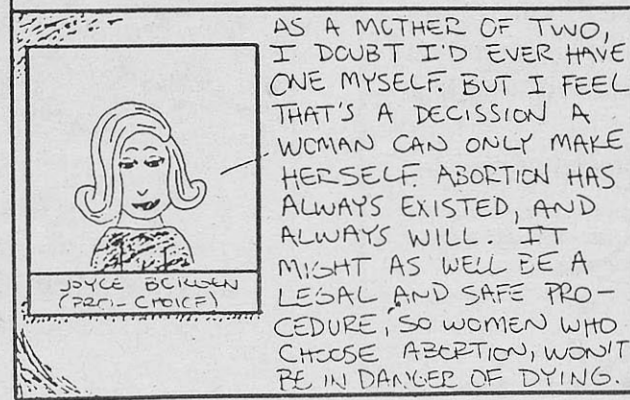 AS A MOTHER OF TWO,
I DOUBT I'D EVER HAVE
ONE MYSELF. BUT I FEEL
THAT'S A DECISSION A
WOMAN CAN ONLY MAKE
HERSELF. ABORTION HAS
ALWAYS EXISTED, AND
ALWAYS WILL. IT
MIGHT AS WELL BE A
LEGAL AND SAFE PRO-
CEDURE, SO WOMEN WHO
CHOOSE ABORTION, WON'T
BE IN DANGER OF DYING.
JOYCE
(PRO-CHOICE)